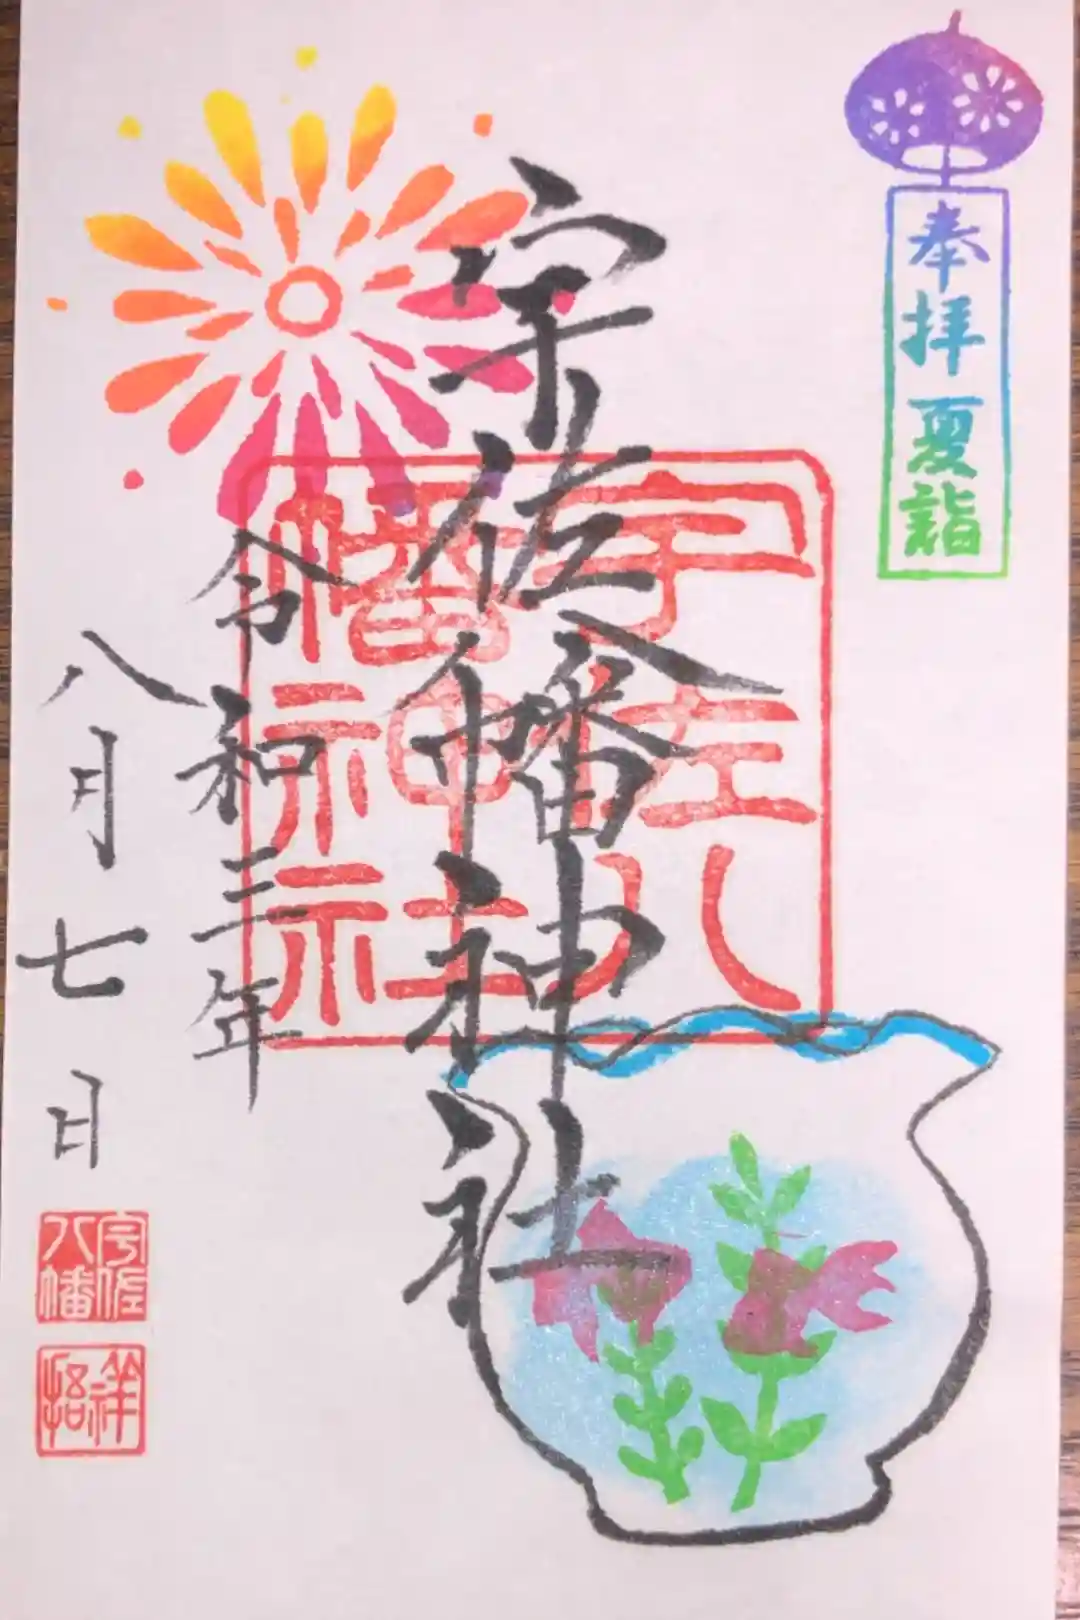 奉拝 夏詣
宇佐八幡神社
宇佐八
幡神社
令和三年
八月七日
宇佐
八幡